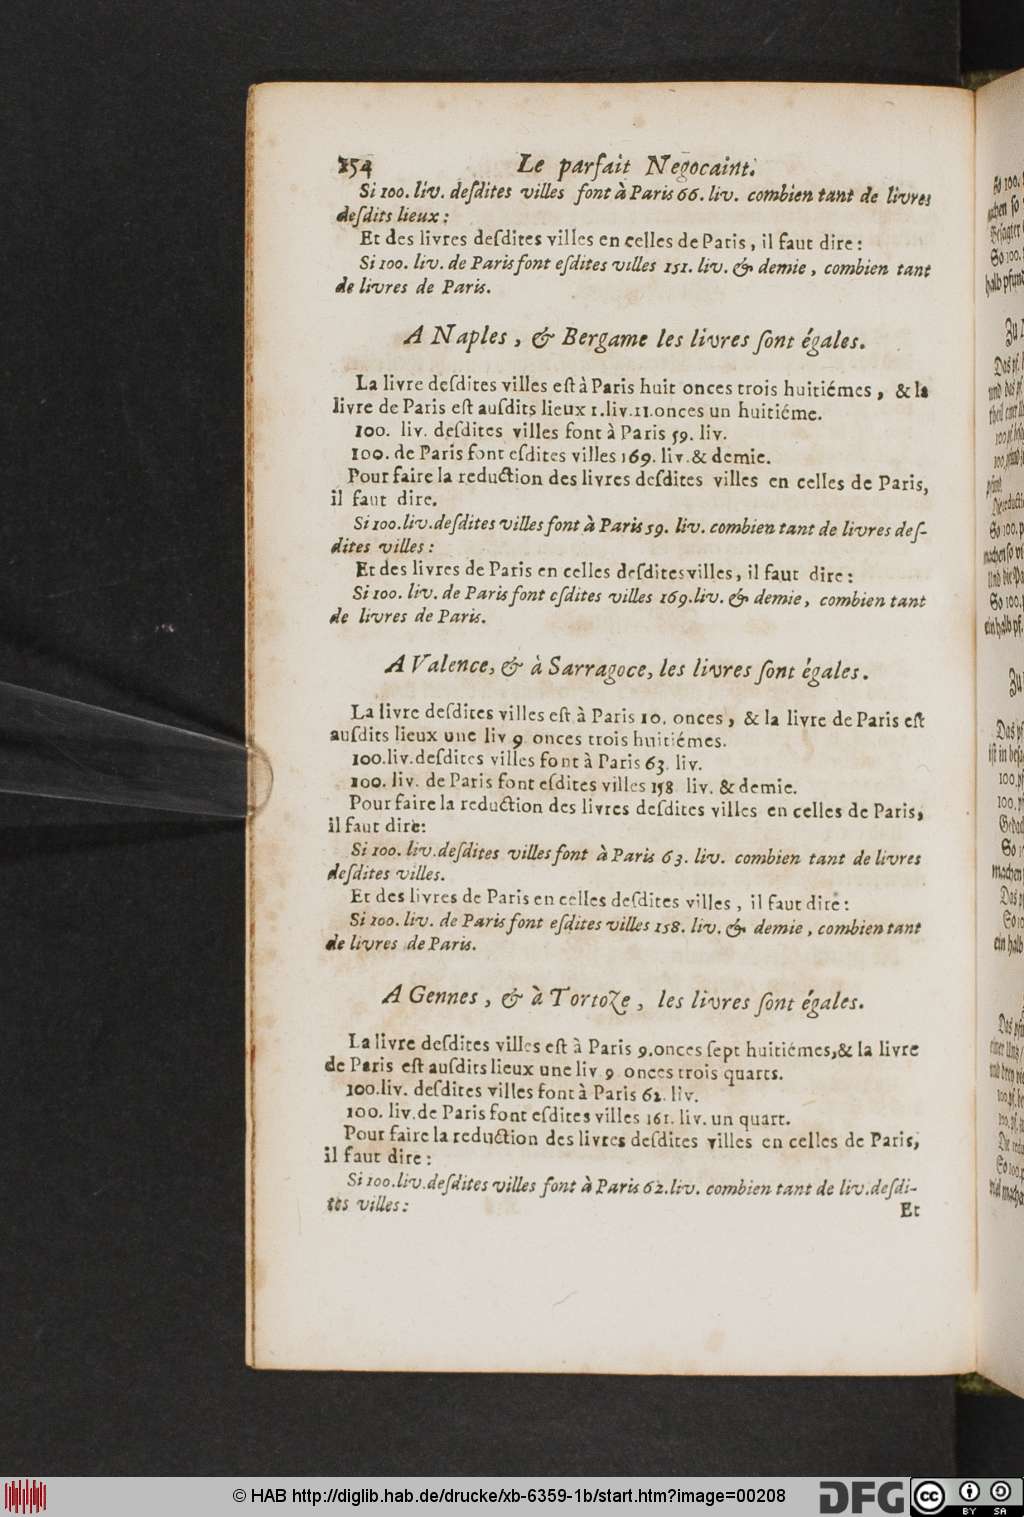 154 Le parfait Negocaint.
Si 100. liv. deſdites villes font à Paris 66. liv. combien tant de livres
deſdits lieux :
Et des livres deſdites villes en celles de Paris, il faut dire :
Si 100. liv. de Paris font eſdites villes 151. liv. & demie, combien tant
de livres de Paris.
A Naples, & Bergame les livres ſont égales.
La livre deſdites villes eſt à Paris huit onces trois huitiémes, & la
livre de Paris eſt auſdits lieux 1.liv.11.onces un huitiéme.
100. liv. deſdites villes font à Paris 59. liv.
100. de Paris font eſdites villes 169. liv.& demie.
Pour faire la reduction des livres deſdites villes en celles de Paris,
il faut dire.
Si 100.liv.deſdites villes font à Paris 59. liv. combien tant de livres deſ-
dites villes :
Et des livres de Paris en celles deſdites villes, il faut dire :
Si 100. liv. de Paris font eſdites villes 169.liv. & demie, combien tant
de livres de Paris.
A Valence, & à Sarragoce, les livres ſont égales.
La livre deſdites villes eſt à Paris 10. onces, & la livre de Paris eſt
auſdits lieux une liv 9 onces trois huitiémes.
100.liv.deſdites villes font à Paris 63. liv.
100. liv. de Paris font eſdites villes 158 liv. & demie.
Pour faire la reduction des livres deſdites villes en celles de Paris,
il faut dire:
Si 100. liv.deſdites villes font à Paris 63. liv. combien tant de livres
deſdites villes.
Et des livres de Paris en celles deſdites villes, il faut dire :
Si 100. liv. de Paris font eſdites villes 158. liv. & demie, combien tant
de livres de Paris.
A Gennes, & à Tortoze, les livres ſont égales.
La livre deſdites villes eſt à Paris 9.onces ſept huitiémes,& la livre
de Paris eſt auſdits lieux une liv 9 onces trois quarts.
100.liv. deſdites villes font à Paris 62. liv.
100. liv.de Paris font eſdites villes 161. liv. un quart.
Pour faire la reduction des livres deſdites villes en celles de Paris,
il faut dire :
Si 100.liv.deſdites villes font à Paris 62.liv. combien tant de liv.deſdi-
tes villes :
Et
© HAB http://diglib.hab.de/drucke/xb-6359-1b/start.htm?image=00208
DFG
cc BY SA